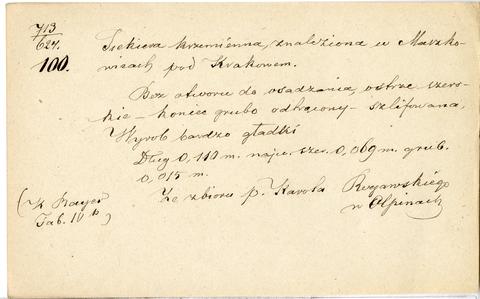 713
624.
100.
Siekiera krzemienna, znaleziona w Maszko-
wicach pod Krakowem.
Bez otworu do osadzania, ostrze szero-
kie – koniec grubo odtrącony – szlifowana,
Wyrob bardzo gładki
Dług 0,110 m. najw. szer. 0,069 m. grub.
0,015 m.
Ze zbioru p. Karola Rogawskiego
w Ołpinach
Tab. IV